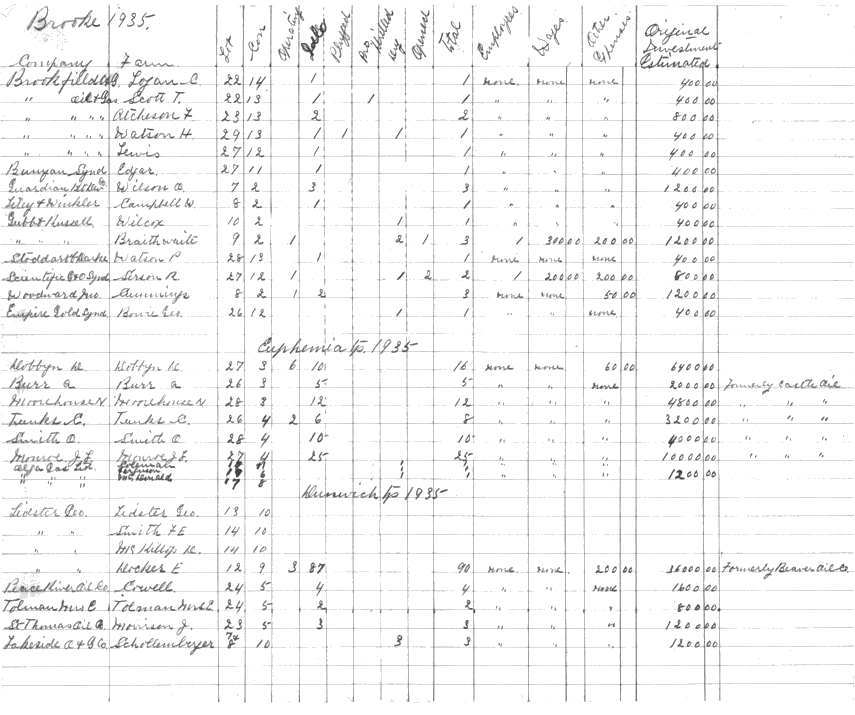 Brooke 1935.
Company Farm Lot Con Operating Idle Plugged Dry Gas Total Employees Wages Other Expenses Original Investment Estimated
Brookfield Logan C. 22 14 1 1 none none none 400 00
" Oil & Gas Scott T. 22 13 1 1 1 " " " 400 00
" " " " Atcheson F 23 13 2 2 " " " 800 00
" " " " Watson H. 29 13 1 1 1 1 " " " 400 00
" " " " Lewis 27 12 1 1 " " " 400 00
Bunyan Synd Edgar. 27 11 1 1 " " " 400 00
Guardian Wilson A. 7 2 3 3 " " " 1200 00
Liley & Winkler Campbell W. 8 2 1 1 " " " 400 00
Gubb & Russell Wilcox 10 2 1 1 " " " 400 00
" " " Braithwaite 9 2 1 2 1 3 1 300 00 200 00 1200 00
Stoddart & Clarke Watson P 28 13 1 1 none none none 400 00
Scientific Synd R. 27 12 1 1 2 2 1 200 00 200 00 800 00
Woodward Geo. Cummings 8 2 1 2 3 none none 50 00 1200 00
Empire Gold Synd Bowie Geo. 26 12 1 1 " " none 400 00
Euphemia tp. 1935
Dobbyn D. Dobbyn D. 27 3 6 10 16 none none 60 00 6400 00
Burr A Burr A 26 3 5 5 " " none 2000 00 Formerly Castle Oil
Moorehouse N Moorehouse N 28 3 12 12 " " " 4800 00 " " "
Tunks E. Tunks C. 26 4 2 6 8 " " " 3200 00 " " "
Smith O. Smith O 28 4 10 10 " " " 4000 00 " " "
Monroe J.F. Monroe J.F. 27 4 25 25 " " " 10000 00 " " "
Gas Ltd. Coleman 1 1 " " "
" " " Ferguson 6 1 1 " " " 1200 00
" " " McDonald 17 8 1 1
Dunwich tp 1935
Lidster Geo. Lidster Geo. 13 10
" " Smith F E 14 10
" " McKillop D. 14 10
" " Docker E 12 9 3 87 90 none none 200 00 36000 00 Formerly Beaver Oil Co
Peace River Oil Co Cowell 24 5 4 4 " " none 1600 00
Tolman Mrs E Tolman Mrs E. 24 5 2 2 " " " 800 00
St Thomas Oil Co. Morrison J. 23 5 3 3 " " " 1200 00
Lakeside O & G Co. Schollemberger 7+8 10 3 3 " " " 1200 00